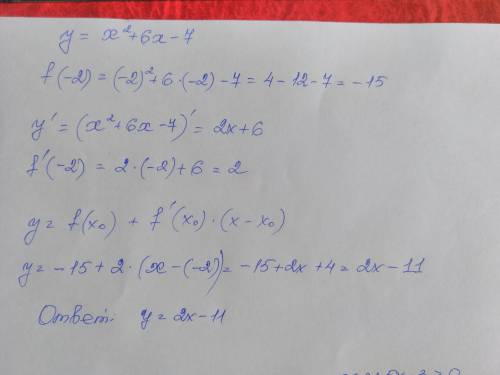 y = x²+6x-7
f(-2) = (-2)²+6·(-2)-7 = 4-12-7 = -15
y' = (x²+6x-7)' = 2x+6
f'(-2) = 2·(-2)+6 = 2
y = f(x₀) + f'(x₀)·(x-x₀)
y = -15+2·(x-(-2)) = -15+2x+4 = 2x-11
Ответ: y = 2x-11